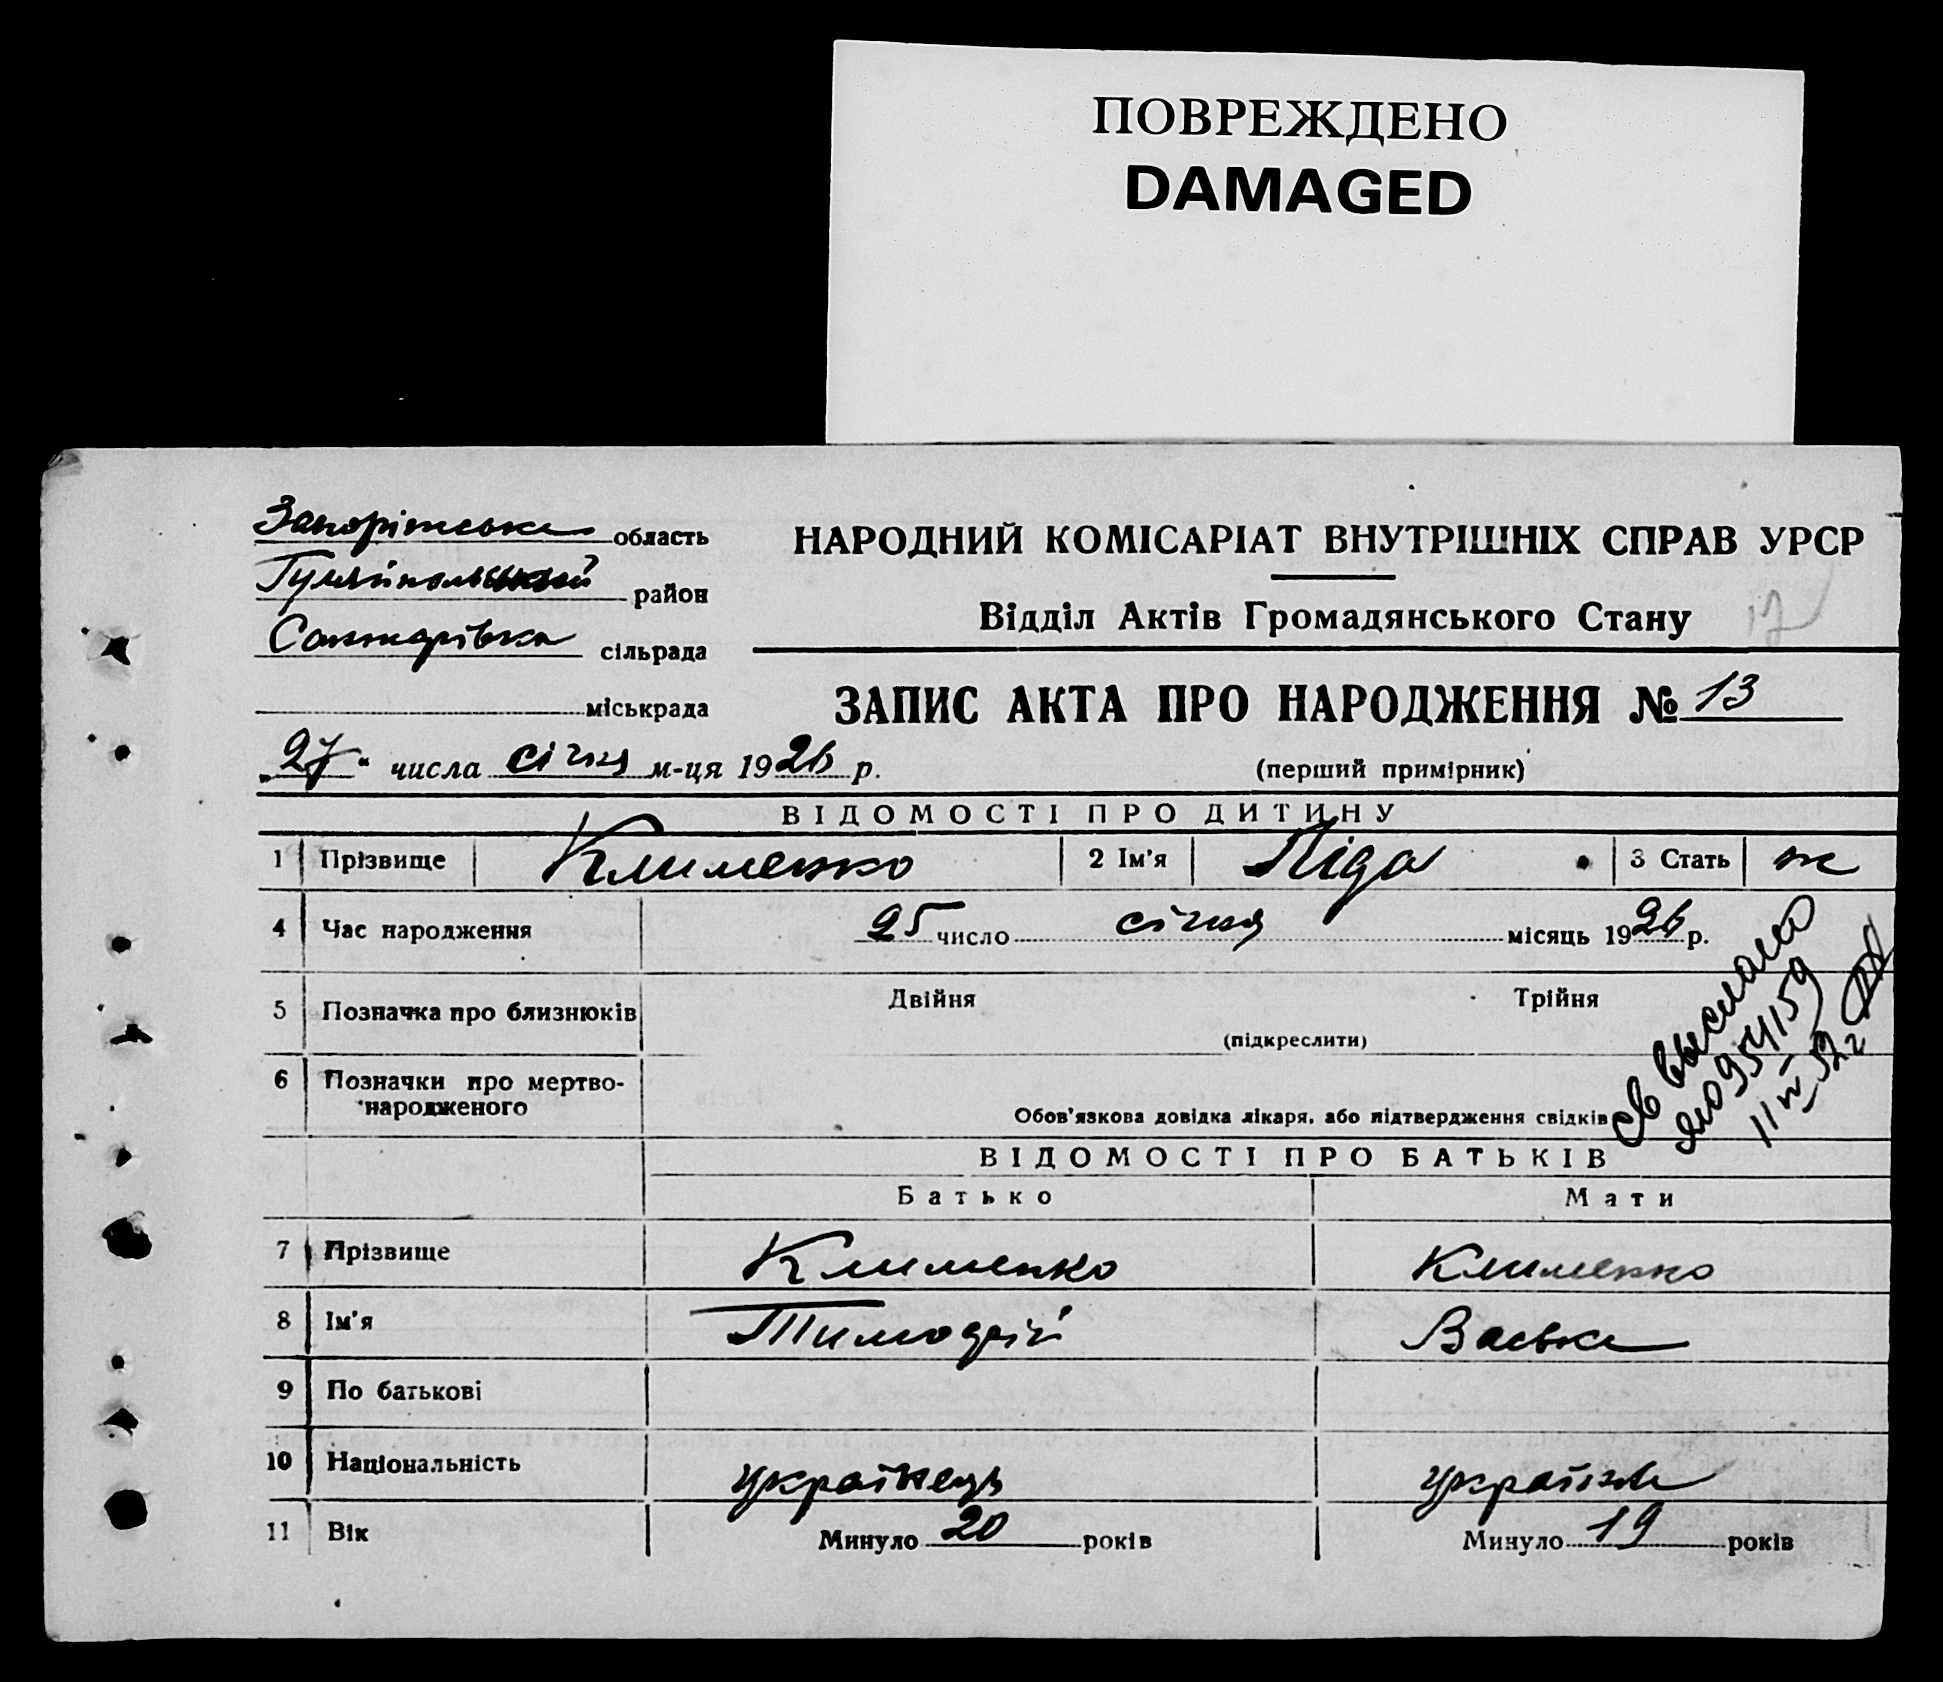 ПОВРЕЖДЕНО
DAMAGED
Запоріжська область
Гуляйпольський район
сільрада
міськрада
НАРОДНИЙ КОМІСАРІАТ ВНУТРІШНІХ СПРАВ УРСР
Відділ Актів Громадянського Стану
17
ЗАПИС АКТА ПРО НАРОДЖЕННЯ № 13
„27" числа січня м-ця 1926 р.
(перший примірник)
ВІДОМОСТІ ПРО ДИТИНУ
1 Прізвище Клименко 2 Ім'я Ліда 3 Стать ж
4 Час народження 25 число січня місяць 1926 р.
5 Позначка про близнюків Двійня Трійня
(підкреслити)
6 Позначки про мертво-
народженого
Обов'язкова довідка лікаря, або підтвердження свідків
св выслано
954159
11
ВІДОМОСТІ ПРО БАТЬКІВ
Батько Мати
7 Прізвище Клименко Клименко
8 Ім'я Тимофій Васька
9 По батькові
10 Національність українець українка
11 Вік Минуло 20 років Минуло 19 років